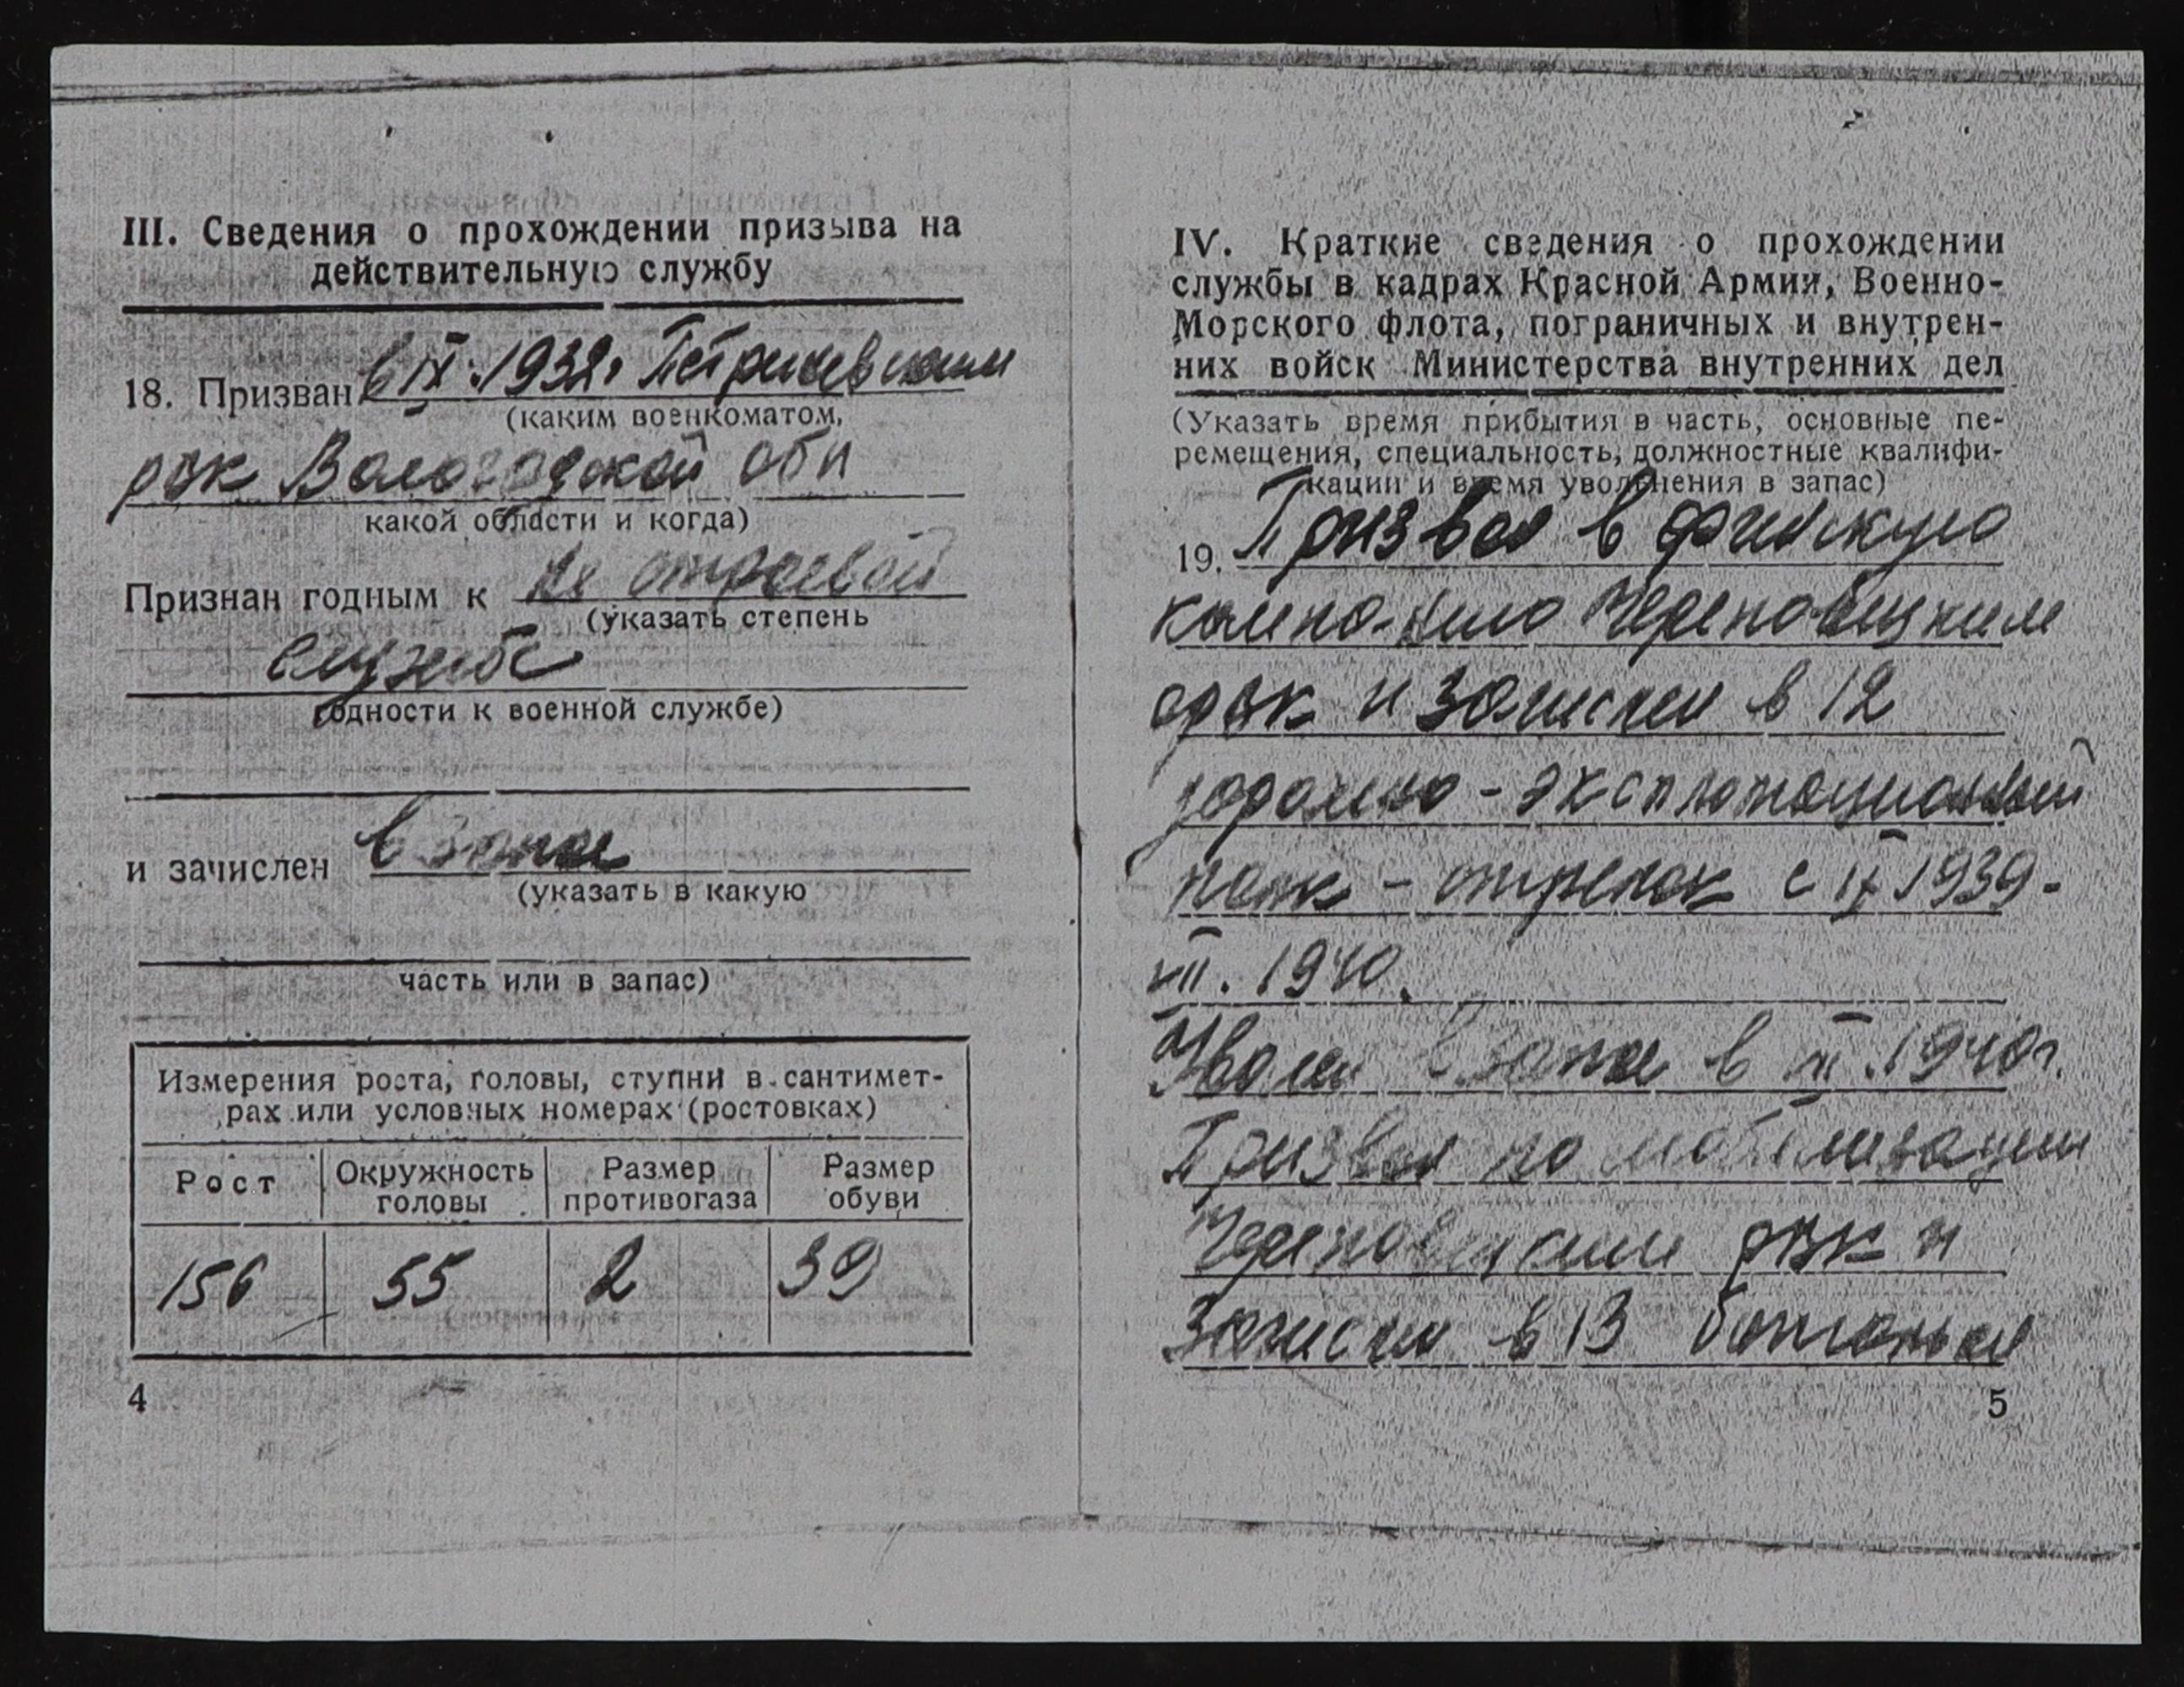 III. Сведения о прохождении призыва на
действительную службу
18. Призван в IX.1932г Петриневским
(каким военкоматом,
рвк Вологодской обл
какой области и когда)
Признан годным к не строевой
(указать степень
службе
годности к военной службе)
и зачислен в запас
(указать в какую
часть или в запас)
Измерения роста, головы, ступни в сантимет-
рах или условных номерах (ростовках)
Рост Окружность головы Размер противогаза Размер обуви
156 55 2 39
4
IV. Краткие сведения о прохождении
службы в кадрах Красной Армии, Военно-
Морского флота, пограничных и внутрен-
них войск Министерства внутренних дел
(Указать время прибытия в часть, основные пе-
ремещения, специальность, должностные квалифи-
кации и время увольнения в запас)
19. Призван в финскую
кампанию Череповецким
орвк и зачислен в 12
дорожно-эксплотационный
полк - стрелок с IX 1939-
VII. 1940.
Уволен в запас в VII.1940г.
Призван по мобилизации
Череповецким рвк и
Зачислен в 13 батальон
5